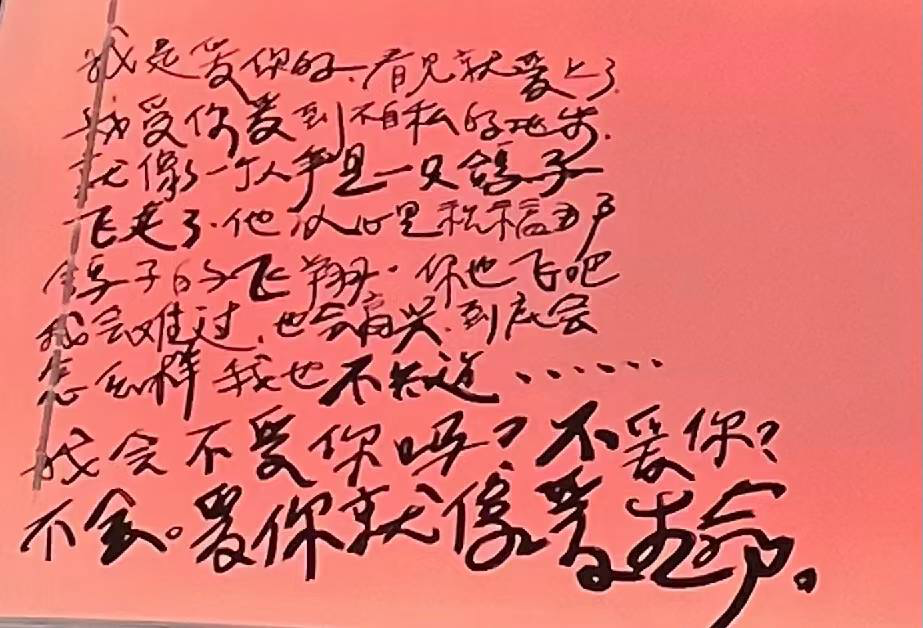 我是爱你的，看见就爱上了.
我爱你爱到不自私的地步.
就像一个人手里一只鸽子
飞走了.他从心里祝福那
鸽子的飞翔.你也飞吧
我会难过,也会高兴.到底会
怎么样我也不知道……
我会不爱你吗？不爱你？
不会。爱你就像爱生命。